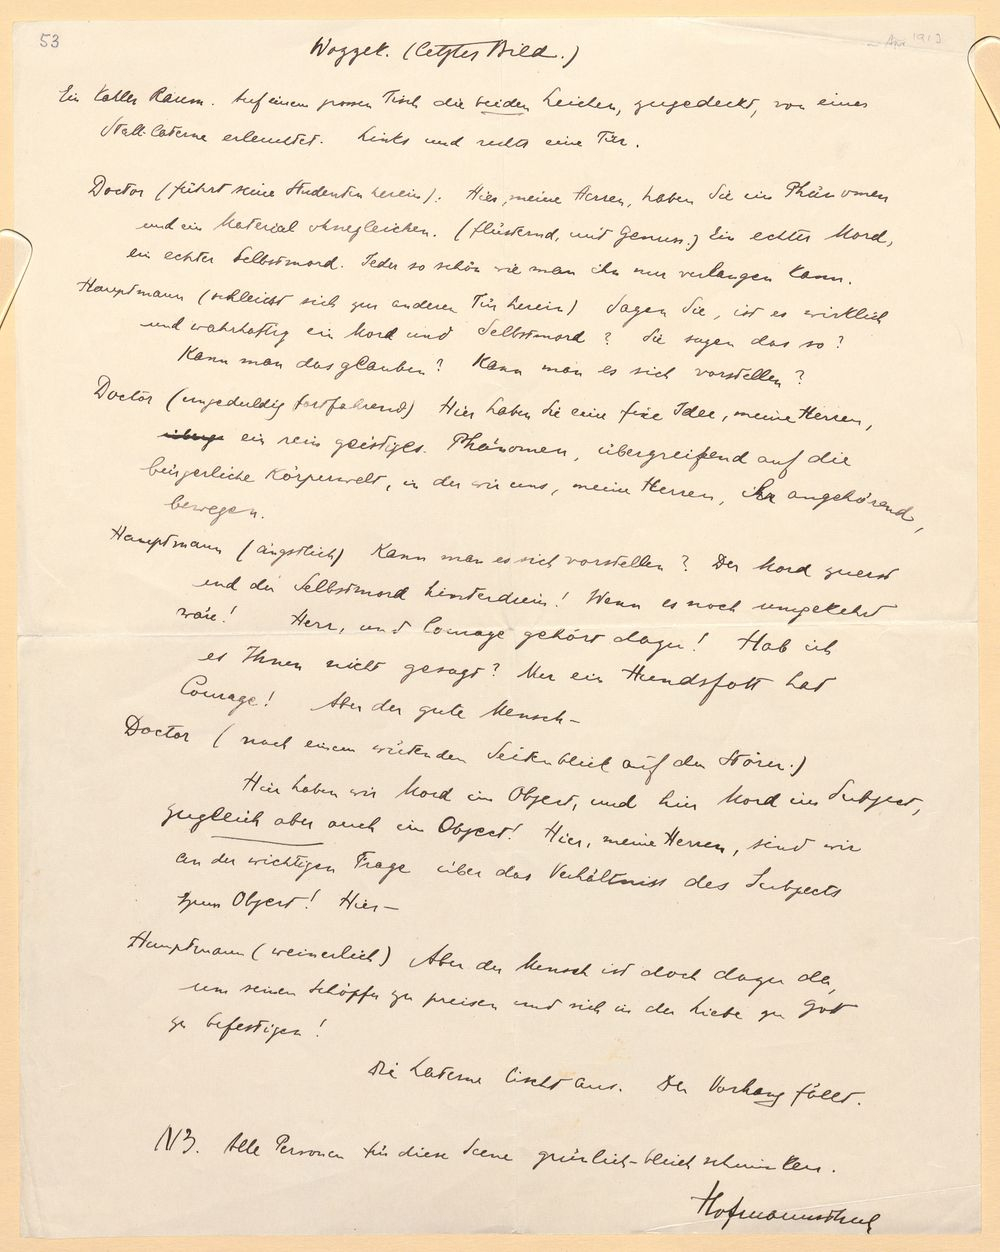 53
1913
Wozzek. (Letztes Bild.)
Ein kahler Raum. Auf einem grossen Tisch die beiden Leichen, zugedeckt, von einer
Stall-Laterne erleuchtet. Links und rechts eine Tür.
Doctor (führt seine Studenten herein): Hier, meine Herren, haben Sie ein Phänomen
und ein Material ohnegleichen. (flüsternd, mit Genuss.) Ein echter Mord,
ein echter Selbstmord. Jeder so schön wie man ihn nur verlangen kann.
Hauptmann (schleicht sich zur anderen Tür herein) Sagen Sie, ist es wirklich
und wahrhaftig ein Mord und Selbstmord? Sie sagen das so?
Kann man das glauben? Kann man es sich vorstellen?
Doctor (ungeduldig fortfahrend) Hier haben Sie eine fixe Idee, meine Herren,
ein rein geistiges Phänomen, übergreifend auf die
bürgerliche Körperwelt, in der wir uns, meine Herren, ihr angehörend,
bewegen.
Hauptmann (ängstlich) Kann man es sich vorstellen? Der Mord zuerst
und der Selbstmord hinterdrein! Wenn es noch umgekehrt
wäre! Herr, und Courage gehört dazu! Hab ich
es Ihnen nicht gesagt? Nur ein Hundsfott hat
Courage! Aber der gute Mensch –
Doctor (nach einem wütenden Seitenblick auf den Störer.)
Hier haben wir Mord im Object, und hier Mord im Subject,
zugleich aber auch im Object! Hier, meine Herren, sind wir
an der wichtigen Frage über das Verhältniss des Subjects
zum Object! Hier –
Hauptmann (weinerlich) Aber der Mensch ist doch dazu da,
um seinen Schöpfer zu preisen und sich in der Liebe zu Gott
zu befestigen!
Die Laterne lischt aus. Der Vorhang fällt.
NB. Alle Personen für diese Scene grünlich-bleich schminken.
Hofmannsthal